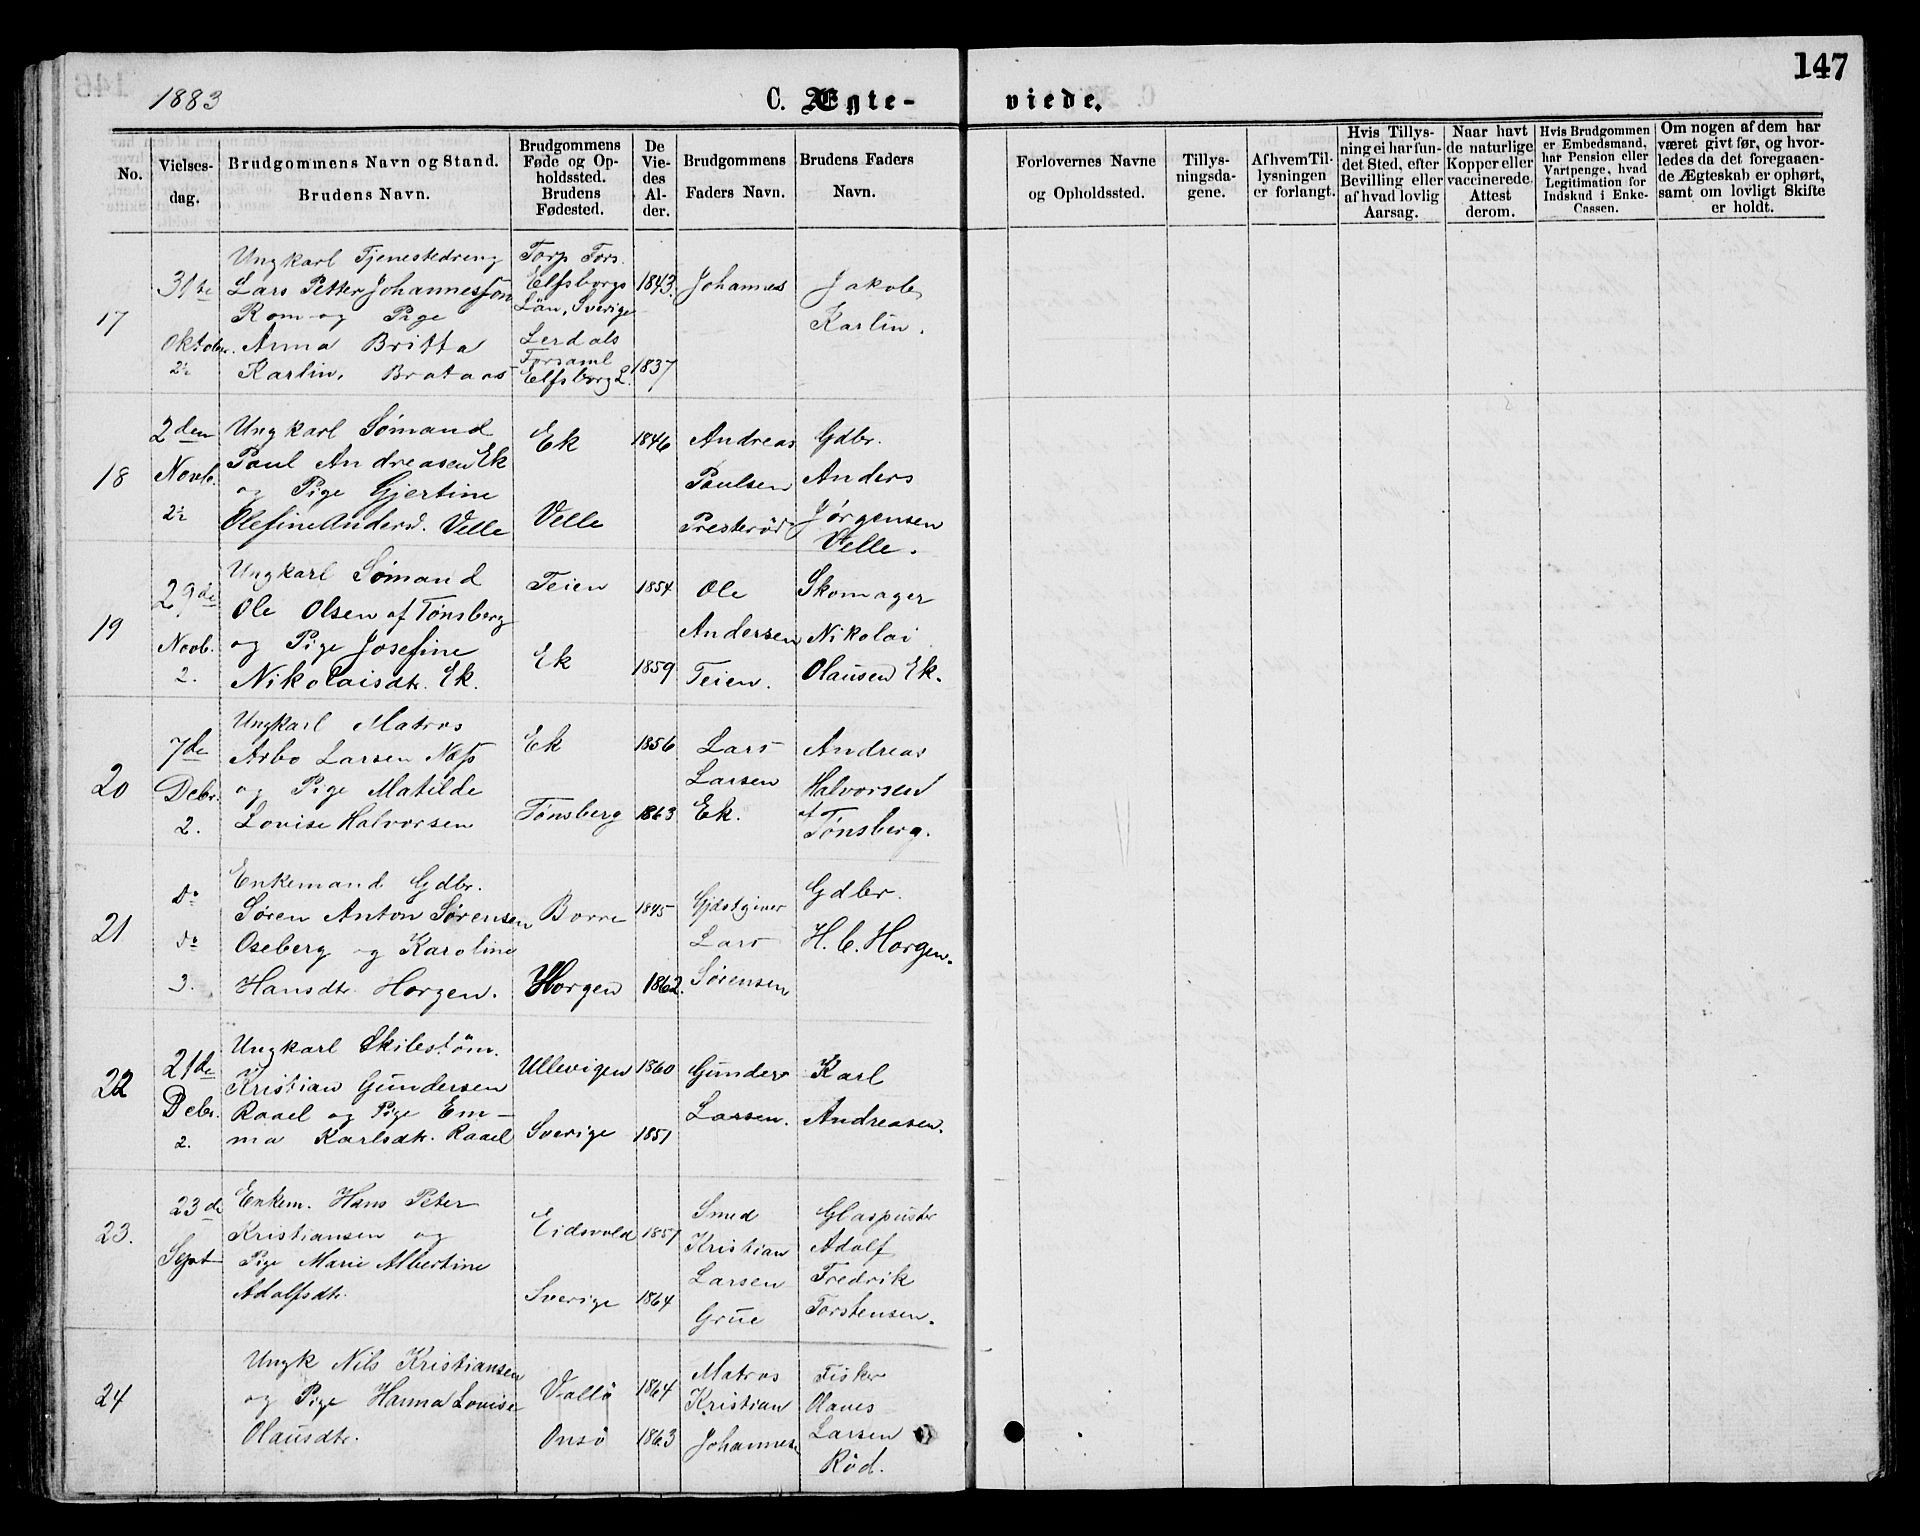 147
1883
C. Ægte- viede.
No.
Vielses-
dag.
Brudgommens Navn og Stand.
Brudens Navn.
Brudgommens
Føde og Op-
holdssted.
Brudens
Fødested.
De
Vie-
des
Al-
der.
Brudgommens
Faders Navn.
Brudens Faders
Navn.
Forlovernes Navne
og Opholdssted.
Tillys-
ningsda-
gene.
Af hvem Til-
lysningen
er forlangt.
Hvis Tillys-
ning ei har fun-
det Sted, efter
Bevilling eller
af hvad lovlig
Aarsag.
Naar havt
de naturlige
Kopper eller
vaccinerede.
Attest
derom.
Hvis Brudgommen
er Embedsmand,
har Pension eller
Vartpenge, hvad
Legitimation for
Indskud i Enke-
Cassen.
Om nogen af dem har
været givt før, og hvor-
ledes da det foregaaen-
de Ægteskab er ophørt,
samt om lovligt Skifte
er holdt.
17
31te
Oktober.
2½
Ungkarl Tjenestedreng
Lars Petter Johannesson
Rom og Pige
Anna Britta
Karlin, Brataas
Torp Fors.
Elfsborgs
Län, Sverige
Lerdals
Forsaml
Elfsborg L.
1843.
1837
Johannes
Jakob
Karlin.
18
2den
Novb.
2½
Ungkarl Sømand
Paul Andreasen Ek
og Pige Gjertine
Olefine Andersd. Velle
Ek
Velle
1846
Andreas
Paulsen
Presterød
Gdbr.
Anders
Jørgensen
Velle.
19
29de
Novb.
2.
Ungkarl Sømand
Ole Olsen af Tønsberg
og Pige Josefine
Nikolaisdtr. Ek.
Teien
Ek
1854
1859
Ole
Andersen
Teien.
Skomager
Nikolai
Olausen Ek.
20
7de
Debr.
2.
Ungkarl Matros
Arbo Larsen Næs
og Pige Matilde
Lovise Halvorsen
Ek
Tønsberg
1856
1863
Lars
Larsen
Ek.
Andreas
Halvorsen
af
Tønsberg.
21
Do
do
3.
Enkemand Gdbr.
Søren Anton Sørensen
Oseberg og Karoline
Hansdtr. Horgen.
Borre
Horgen
1845
1862.
Gjæstgiver
Lars
Sørensen
Gdbr.
H. C. Horgen.
22
21de
Debr.
2.
Ungkarl Skibstöm.
Kristian Gundersen
Raael og Pige Em-
ma Karlsdtr. Raael
Ullevigen
Sverige
1860
1851
Gunder
Larsen.
Karl
Andreasen.
23.
23de
Sept
Enkem. Hans Peter
Kristiansen og
Pige Marie Albertine
Adolfsdtr.
Eidsvold
Sverige
1857
1864
Smed
Kristian
Larsen
Grue
Glaspuster
Adolf
Fredrik
Torstensen.
24
Ungk Nils Kristiansen
og Pige Hanna Lovise
Olausdtr.
Vallö
Onsö
1864
1863
Matros
Kristian
Johannes
Fisker
Olaves
Larsen
Röd.